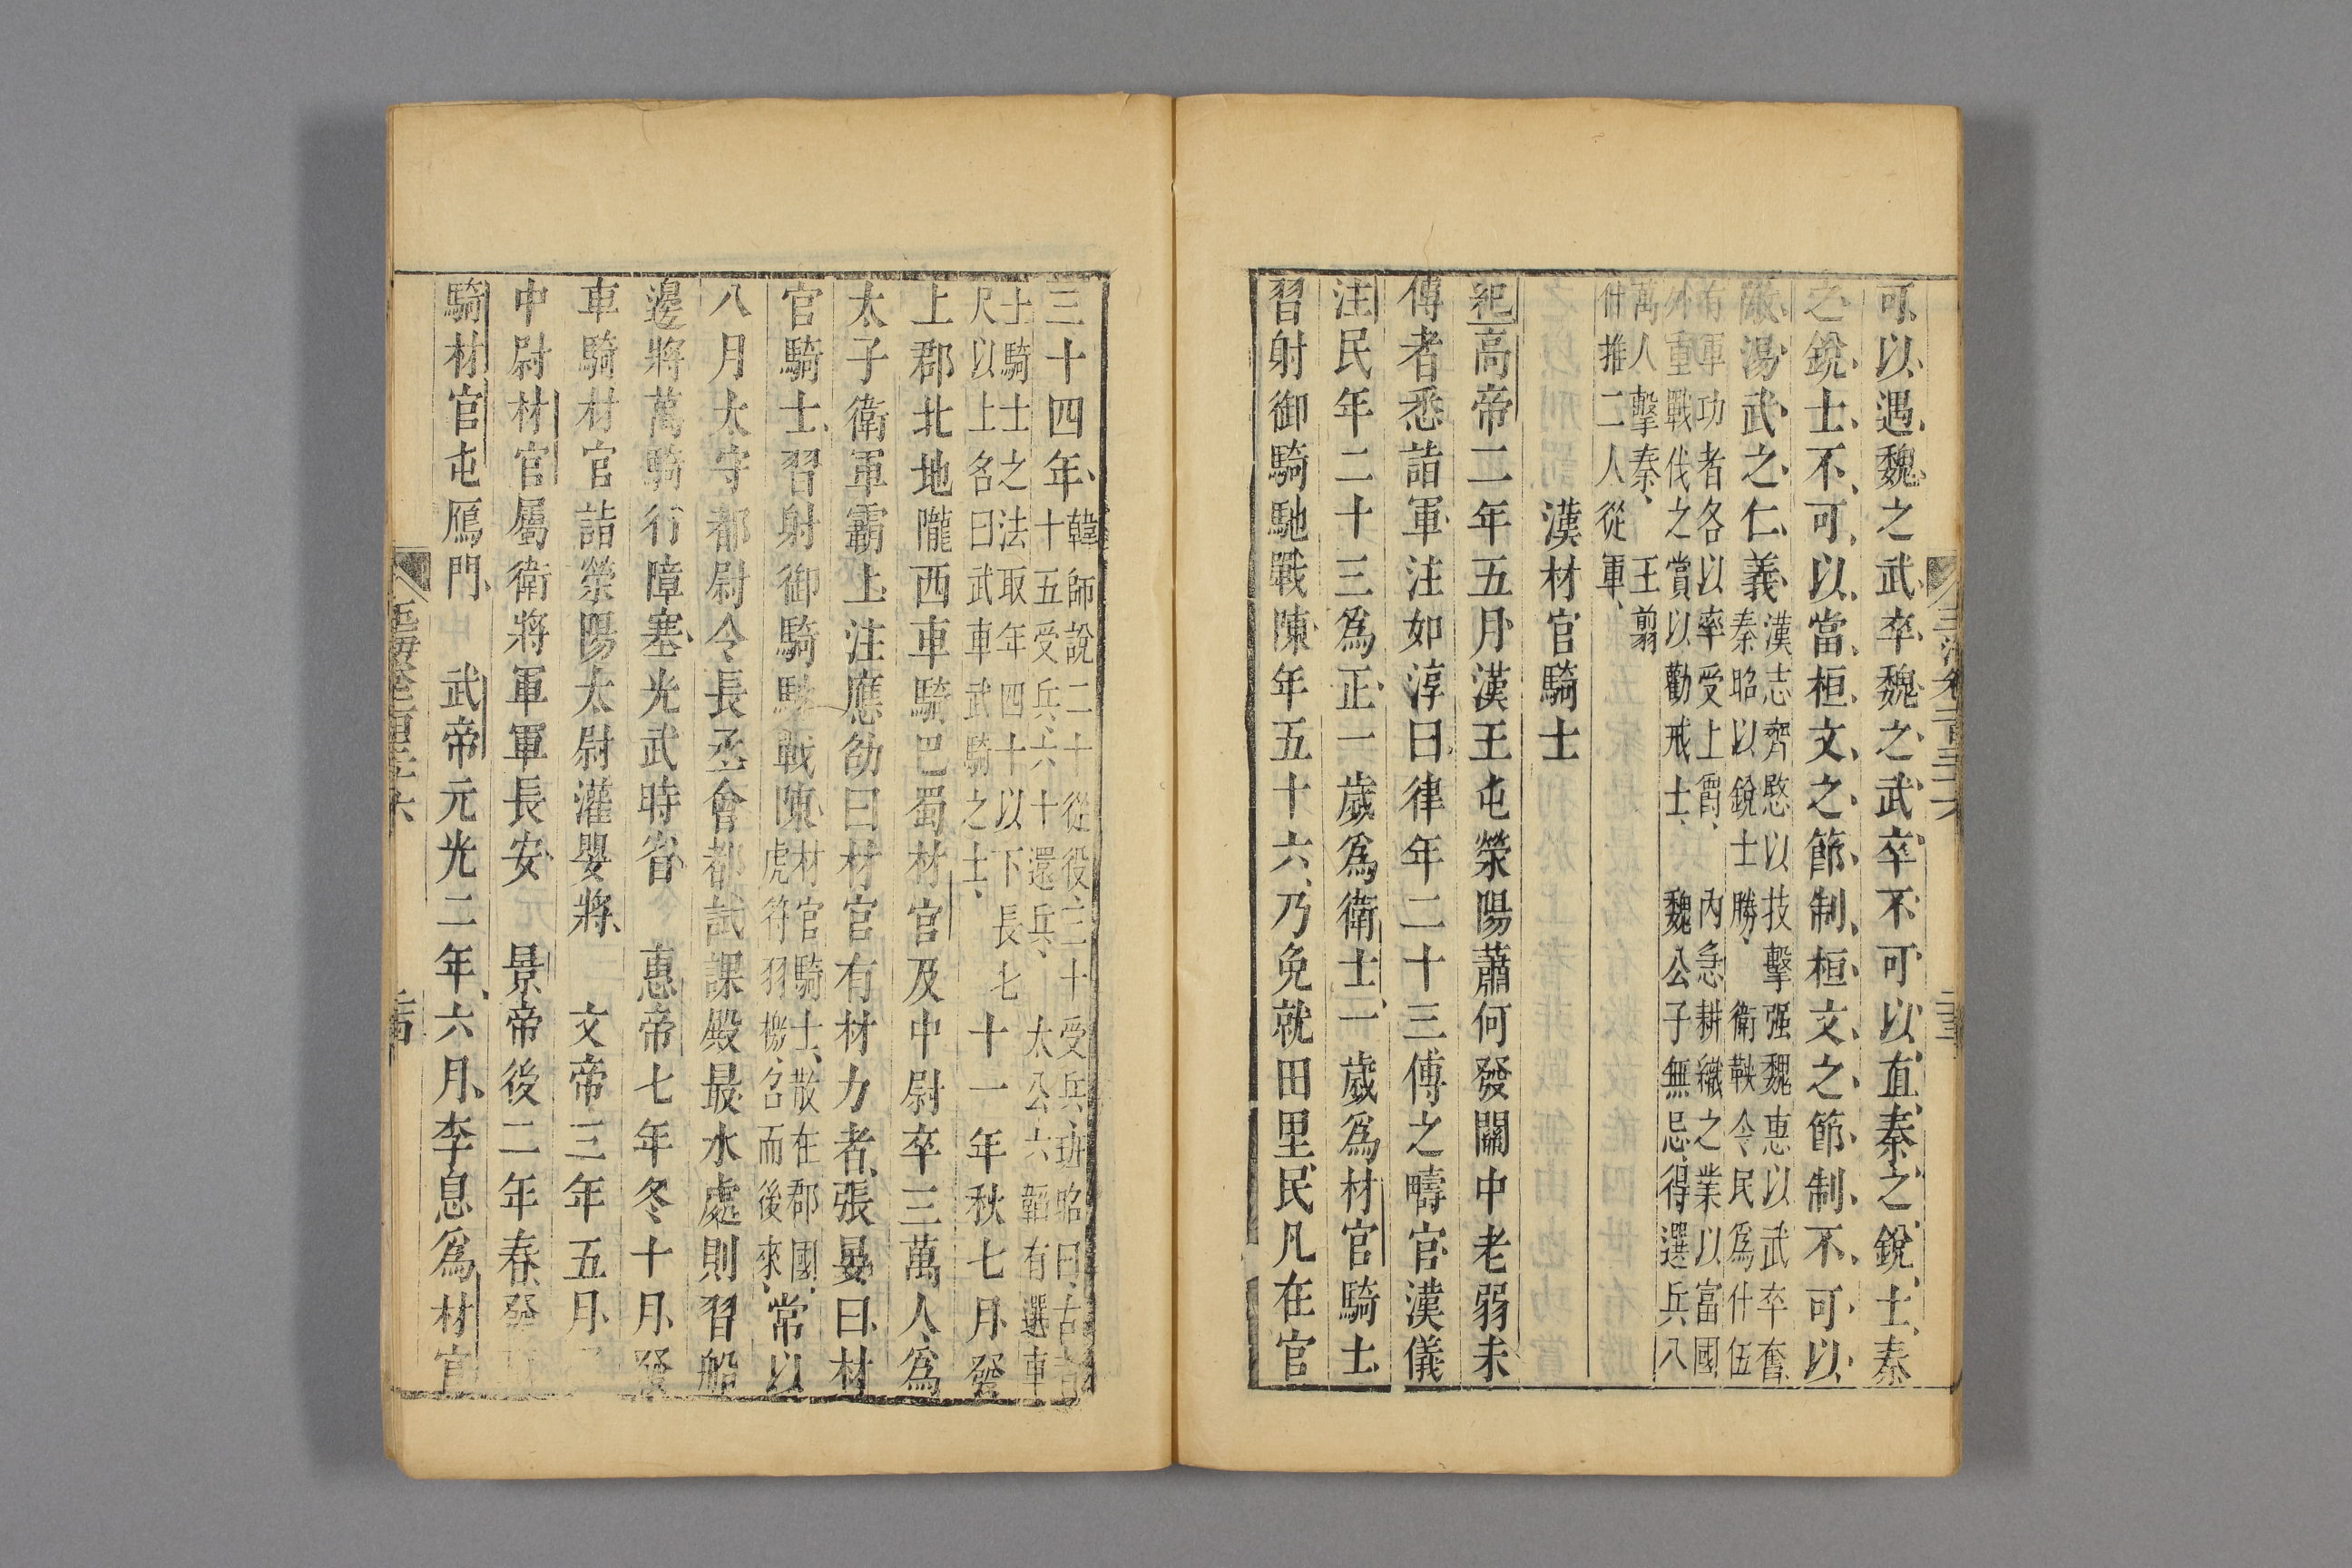 可以遇魏之武卒魏之武卒不可以直秦之銳士秦
之銳士不可以當桓文之節制桓文之節制不可以
敵湯武之仁義
漢志齊愍以技擊强魏惠以武卒奮
秦昭以銳士勝 衛鞅令民爲什伍
有軍功者各以率受上爵 內急耕織之業以富國
外重戰伐之賞以勸戒士 魏公子無忌得選兵八
萬人擊秦 王翦
什推二人從軍
漢材官騎士
紀高帝二年五月漢王屯滎陽蕭何發關中老弱未
傅者悉詣軍注如淳曰律年二十三傅之疇官漢儀
注民年二十三爲正一歲爲衛士一歲爲材官騎士
習射御騎馳戰陳年五十六乃免就田里民凡在官
三十四年
韓師說二十從役三十受兵班昭曰古者
十五受兵六十還兵 太公六韜有選車
士騎士之法取年四十以下長七
尺以上名曰武車武騎之士
十一年秋七月發
上郡北地隴西車騎巴蜀材官及中尉卒三萬人爲
太子衛軍霸上注應劭曰材官有材力者張晏曰材
官騎士習射御騎馳戰陳
材官騎士散在郡國
虎符羽檄召而後來
常以
八月太守都尉令長丞會都試課殿最水處則習船
邊將萬騎行障塞光武時省 惠帝七年冬十月發
車騎材官詣滎陽太尉灌嬰將 文帝三年五月
中尉材官屬衛將軍軍長安 景帝後二年春發
騎材官屯鴈門 武帝元光二年六月李息爲材官